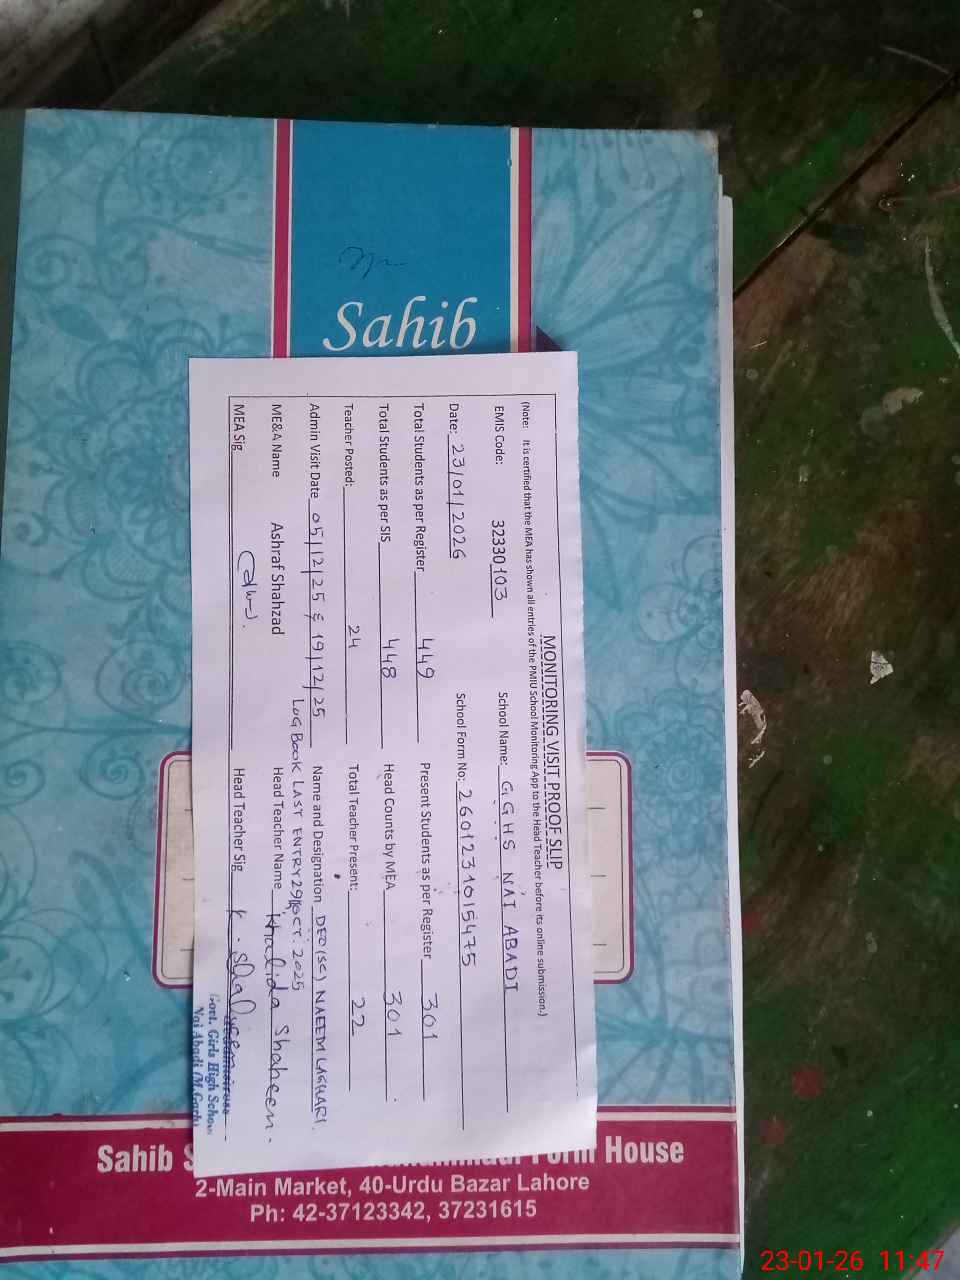 Sahib
MONITORING VISIT PROOF SLIP
(Note: It is certified that the MEA has shown all entries of the PMIU School Monitoring App to the Head Teacher before its online submission.)
EMIS Code: 32330103 School Name: GGHS NAI ABADI
Date: 23/01/2026 School Form No: 2601231015475
Total Students as per Register 449 Present Students as per Register 301
Total Students as per SIS 448 Head Counts by MEA 301
Teacher Posted: 24 Total Teacher Present: 22
Admin Visit Date 05/12/25 & 19/12/25 Name and Designation DEO (SE) NAEEM LAGHARI.
LOG BOOK LAST ENTRY 29 OCT. 2025
ME&A Name Ashraf Shahzad Head Teacher Name Khalida Shaheen.
MEA Sig Head Teacher Sig K. Shaheen
Govt. Girls High School
Nai Abadi (M.Garh)
Sahib House
2-Main Market, 40-Urdu Bazar Lahore
Ph: 42-37123342, 37231615
23-01-26 11:47